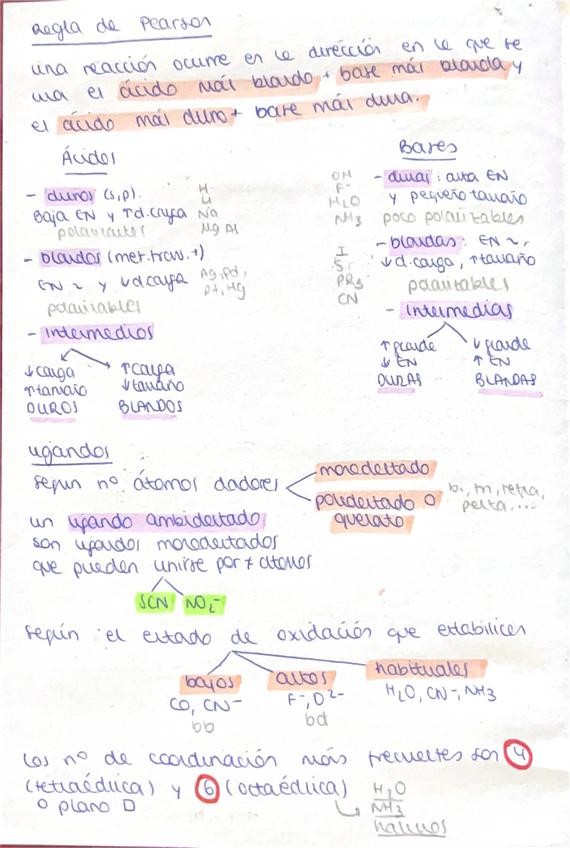 Regla de Pearson
una reacción ocurre en la dirección en la que se
una el ácido más blando + base más blanda y
el ácido más duro + base más dura.
Ácidos
- duros (s,p).
Baja EN y ↑d.carga
polarizantes
H
Li
Na
Mg Al
- blandos (met.trans.+)
EN ~ y ↓d carga
polarizables
Ag, Pd,
Pt, Hg
- Intermedios
↓ carga
↑ tamaño
DUROS
↑ carga
↓ tamaño
BLANDOS
Bases
OH
F-
H2O
NH3
- duras: alta EN
y pequeño tamaño
poco polarizables
I
S
PR3
CN
- blandas: EN ~,
↓d.carga, ↑tamaño
polarizables
- Intermedias
↑ grande
↓ EN
DURAS
↓ grande
↑ EN
BLANDAS
ligandos
según nº átomos dadores
monodentado
polidentado o
quelato
bi, tri, tetra,
penta,...
un ligando ambidentado
son ligandos monodentados
que pueden unirse por ≠ átomos
SCN NO2-
según el estado de oxidación que estabilicen
bajos
CO, CN-
bb
altos
F-, O2-
bd
habituales
H2O, CN-, NH3
los nº de coordinación más frecuentes son 4
(tetraédrica) y 6 (octaédrica)
o plano □
H2O
NH3
halinos